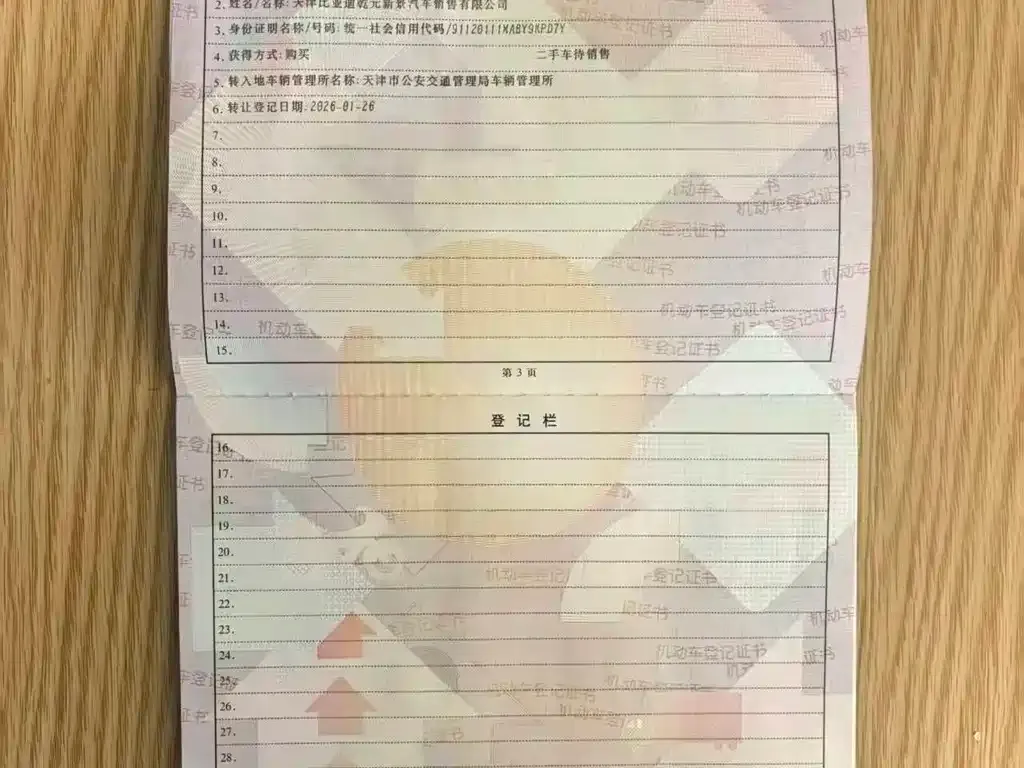 2. 姓名/名称: 天津比亚迪乾元新景汽车销售有限公司
3. 身份证明名称/号码: 统一社会信用代码/91120111MABY9KPD7Y
4. 获得方式: 购买 二手车待销售
5. 转入地车辆管理所名称: 天津市公安交通管理局车辆管理所
6. 转让登记日期: 2026-01-26
7.
8.
9.
10.
11.
12.
13.
14.
15.
第 3 页
登 记 栏
16.
17.
18.
19.
20.
21.
22.
23.
24.
25.
26.
27.
28.